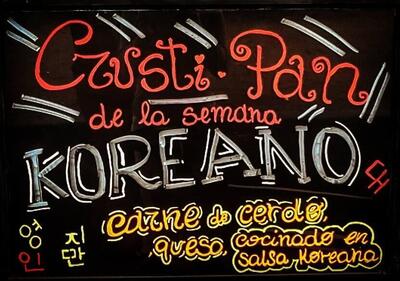 Crusti·Pan
de la semana
KOREANO
carne de cerdo,
queso, cocinado en
salsa Koreana
영 지
인